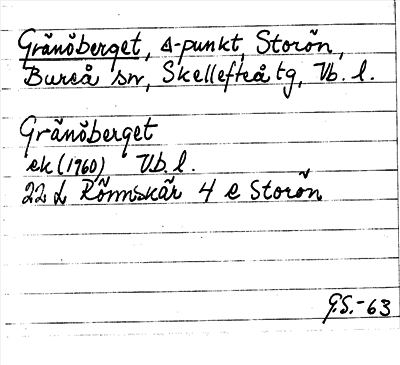 Gränöberget, △-punkt, Storön,
Bureå sn, Skellefteå tg, Vb. l.
Gränöberget
ek (1960) Vb. l.
22 L Rönnskär 4 e Storön
G.S.-63